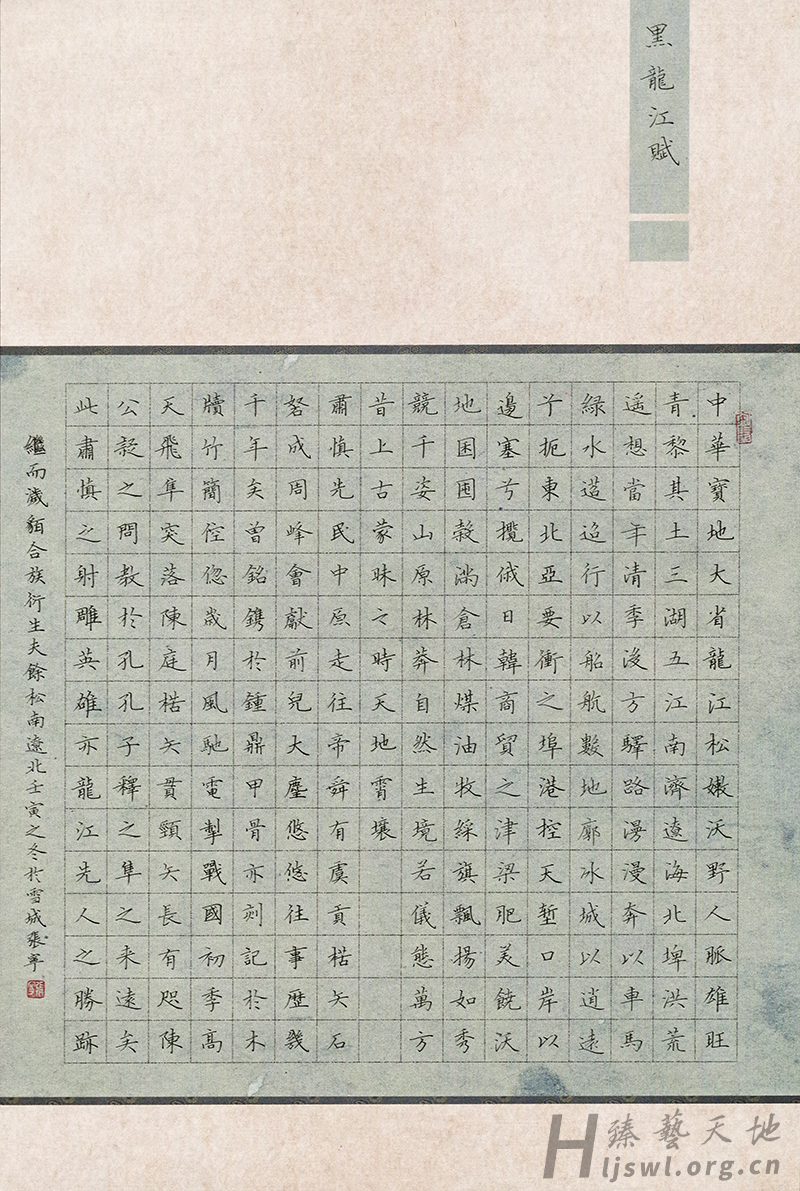 黑龍江賦
中華寶地大省龍江松嫩沃野人脈雄旺
青黎其土三湖五江南濟遼海北埤洪荒
遥想當年清季後方驛路漫漫奔以車馬
綠水迢迢行以船航數地廓冰城以逍遠
兮扼東北亞要衝之埠港控天塹口岸以
邊塞兮攬俄日韓商貿之津梁肥美饒沃
地囷囷榖滿倉林煤油牧綵旗飄揚如秀
競千姿山原林莽自然生境若儀態萬方
昔上古蒙昧之時天地霄壤
肅慎先民中原走往帝舜有虞貢楛矢石
砮成周峰會獻前兒大麈悠悠往事歷幾
千年矣曾銘鐫於鍾鼎甲骨亦刻記於木
牘竹簡倥偬歲月風馳電掣戰國初季高
天飛隼突落陳庭楛矢貫頸矢長有咫陳
公疑之問教於孔孔子釋之隼之来遠矣
此肅慎之射雕英雄亦龍江先人之勝跡
繼而濊貊合族衍生夫餘松南遼北壬寅之冬於雪城張寧
臻藝天地
Hljswl.org.cn